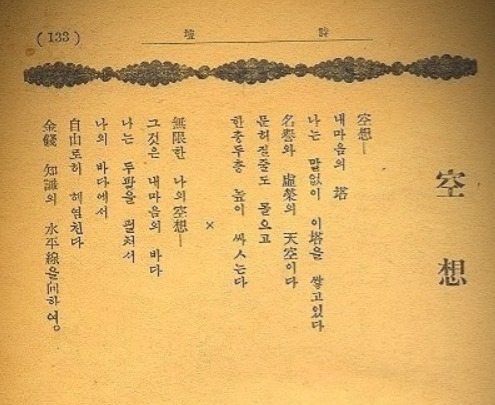 (133)
詩壇
空想
空想—
내마음의 塔
나는 말없이 이塔을 쌓고있다
名譽와 虛榮의 天空에다
문허질줄도 몰으고
한층두층 높이 싸스는다
×
無限한 나의空想—
그것은 내마음의 바다
나는 두팔을 펼처서
나의 바다에서
自由로히 헤염친다
金錢 知識의 水平線을向하여。